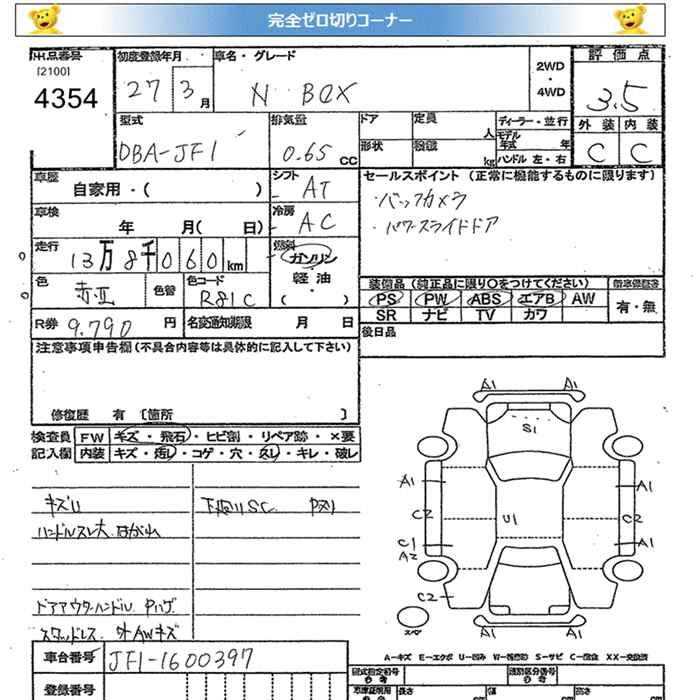 完全ゼロ切りコーナー
出品番号 初度登録年月 車名・グレード 2WD・4WD 評価点
[2100] 4354 27 3月 N BOX 3.5
型式 排気量 ドア 定員 人 ディーラー・並行 外装 内装
DBA-JF1 0.65 CC 形状 kg モデル年式 年 ハンドル 左・右 C C
車歴 自家用・( ) シフト AT セールスポイント (正常に機能するものに限ります)
車検 年 月( 日) 冷房 AC ・バックカメラ
・パワースライドドア
走行 13万8千060km 燃料 ガソリン
軽油
・( )
色 赤II 色替 色コード R81C
装備品 (純正品に限り○をつけてください)
PS PW ABS エアB AW 有・無
SR ナビ TV カワ
R券 9.790 円 名変通知期限 月 日 後日品
注意事項申告欄(不具合内容等は具体的に記入して下さい)
修復歴 有 [箇所 ]
検査員 FW キズ・飛石・ヒビ割・リペア跡・×要
記入欄 内装 キズ・汚レ・コゲ・穴・スレ・キレ・破レ
ハンドルスレ大
ドアアウターハンドル
スタッドレス 外AWキズ
A1 A1
S1
A1 A1
C2 U1 C2
C1 A1
A2
C2
スペア
A1 A1
A-キズ E-エクボ U-凹み S-サビ C-腐食 XX-交換済
車台番号 JF1-1600397
登録番号 長さ cm 幅 cm 高さ cm